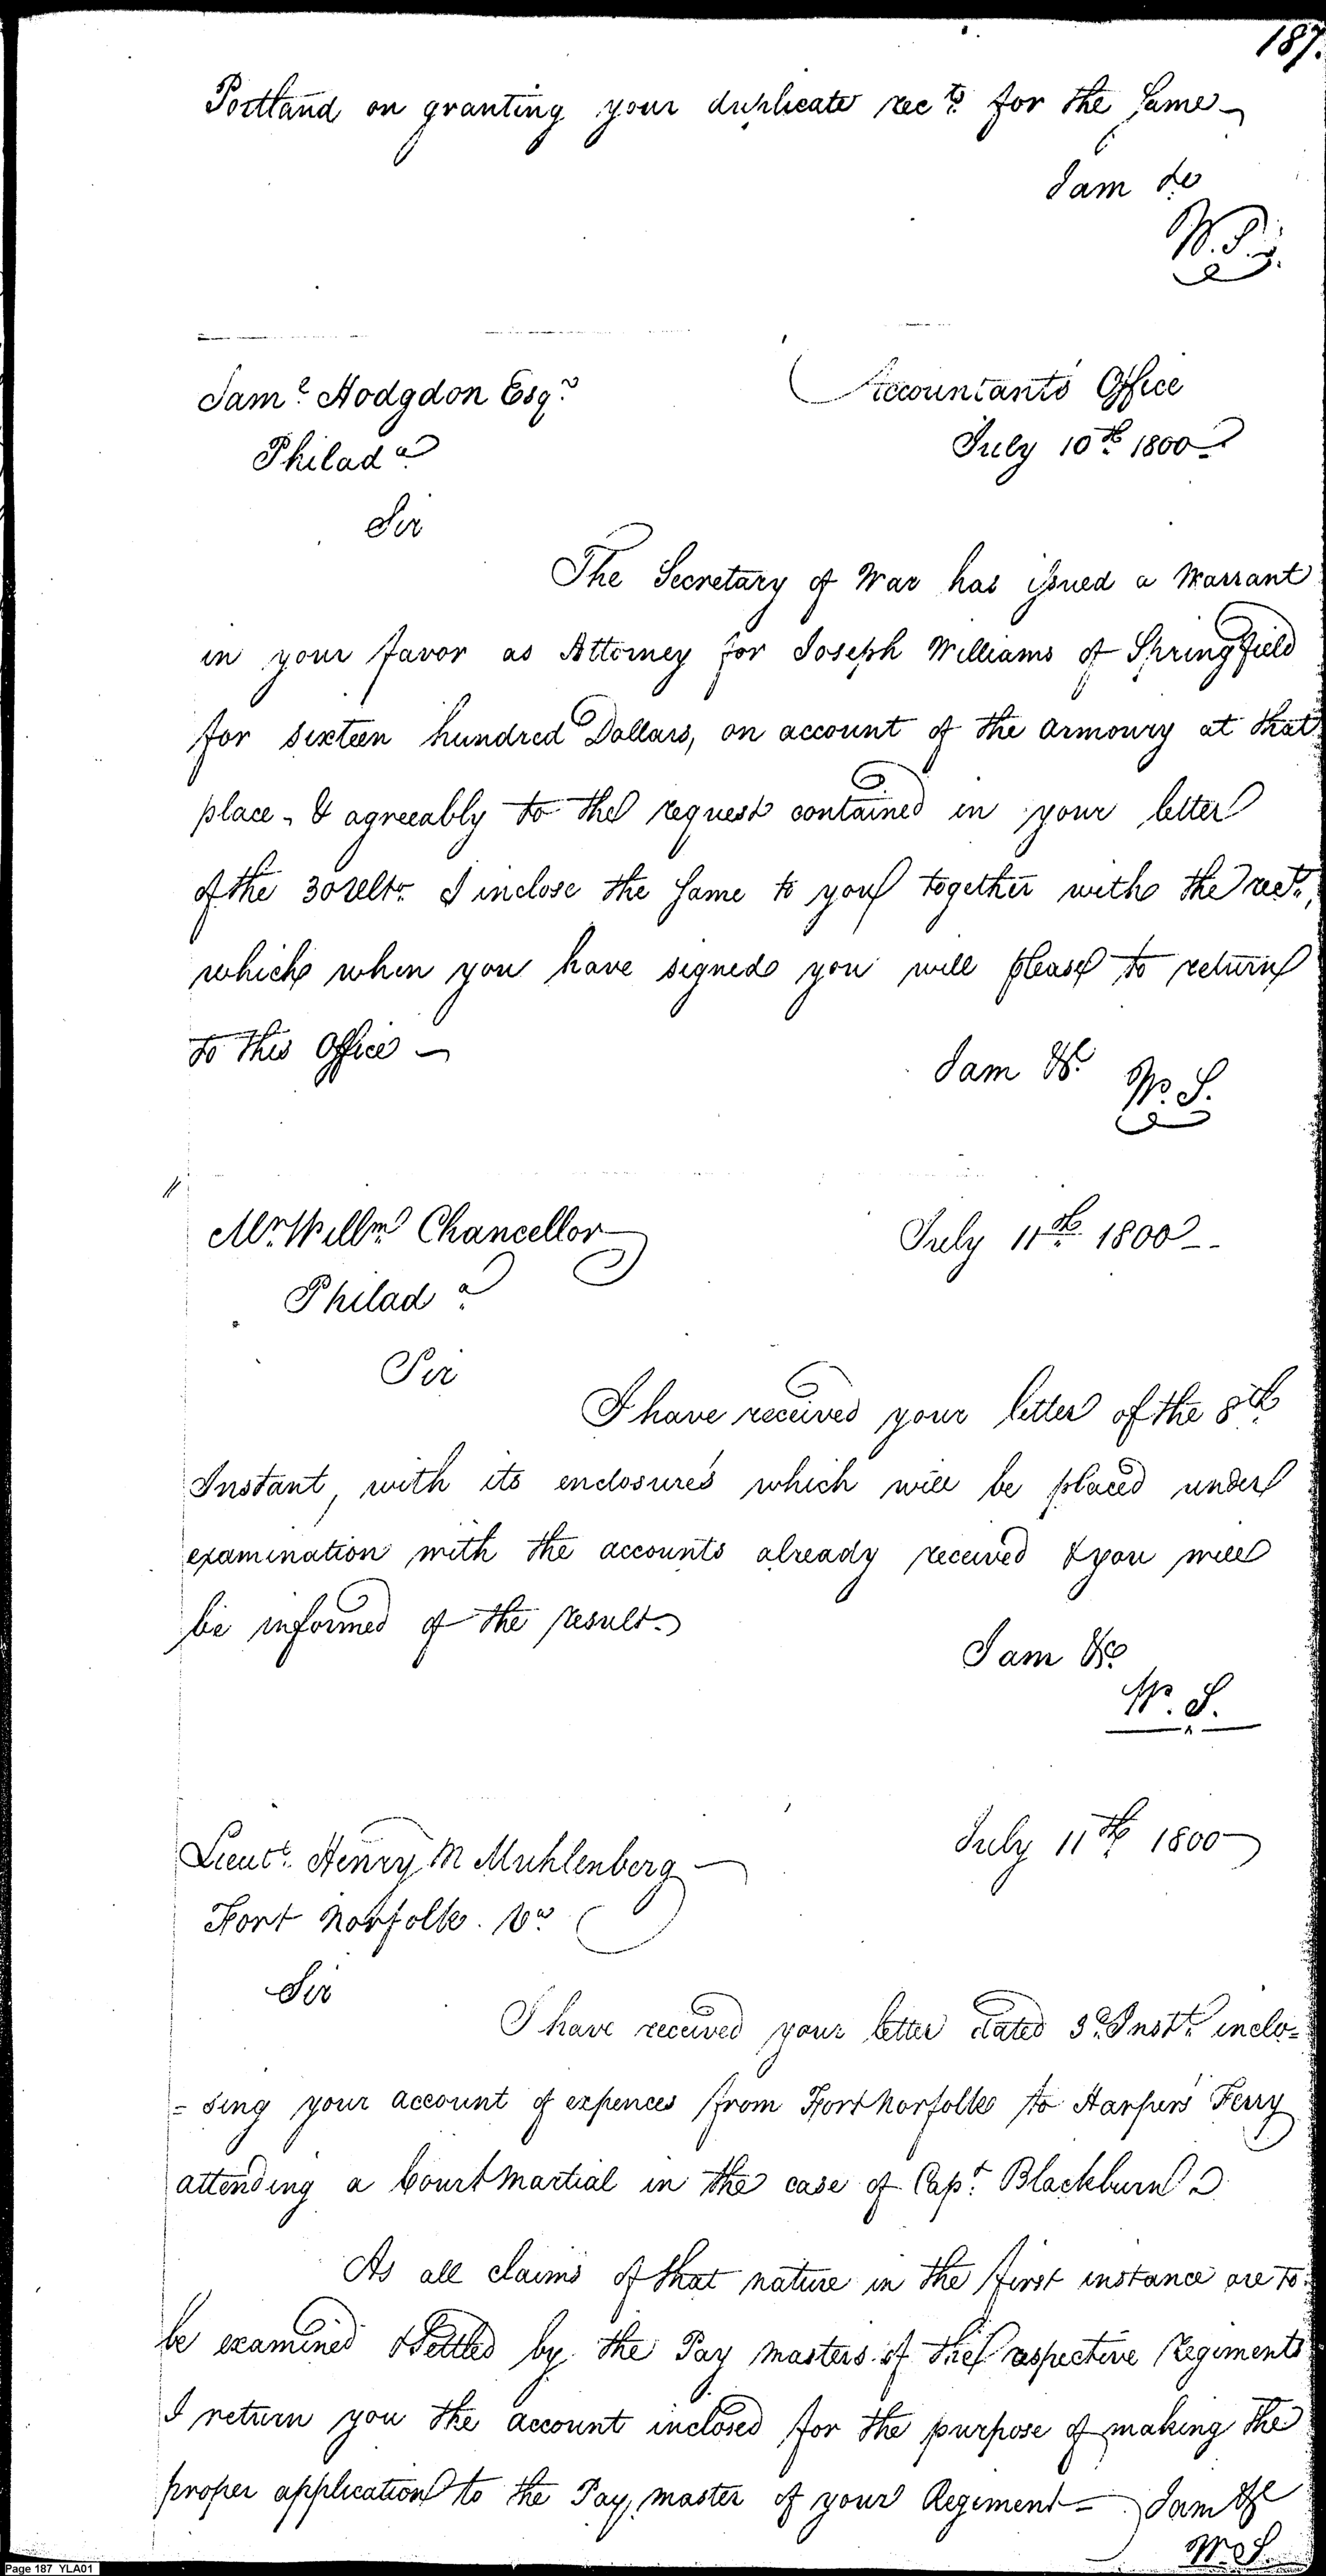 187.
Portland on granting your duplicate rects. for the same
I am &c
W.S.
Saml. Hodgdon Esqr.
Accountants Office
Philada.
July 10th. 1800
Sir
The Secretary of War has issued a Warrant
in your favor as Attorney for Joseph Williams of Springfield
for sixteen hundred Dollars, on account of the armoury at that
place, & agreeably to the request contained in your letter
of the 30 Ulto. I inclose the same to you together with the rects.,
which when you have signed you will please to return
to this Office
I am &c.
W. S.
Mr. Willm. Chancellor
July 11th. 1800
Philada.
Sir
I have received your letter of the 8th.
Instant, with its enclosures which will be placed under
examination with the accounts already received & you will
be informed of the result.
I am &c.
W. S.
Lieut. Henry M Muhlenberg
July 11th 1800
Fort Norfolk. Va.
Sir
I have received your letter dated 3d. Inst. inclo=
=sing your account of expences from Fort Norfolk to Harpers Ferry
attending a Court Martial in the case of Capt. Blackburn
As all claims of that nature in the first instance are to
be examined & Settled by the Pay Masters of the respective Regiments
I return you the account inclosed for the purpose of making the
proper application to the Pay master of your Regiment - I am &c
W. S.
Page 187 YLA01